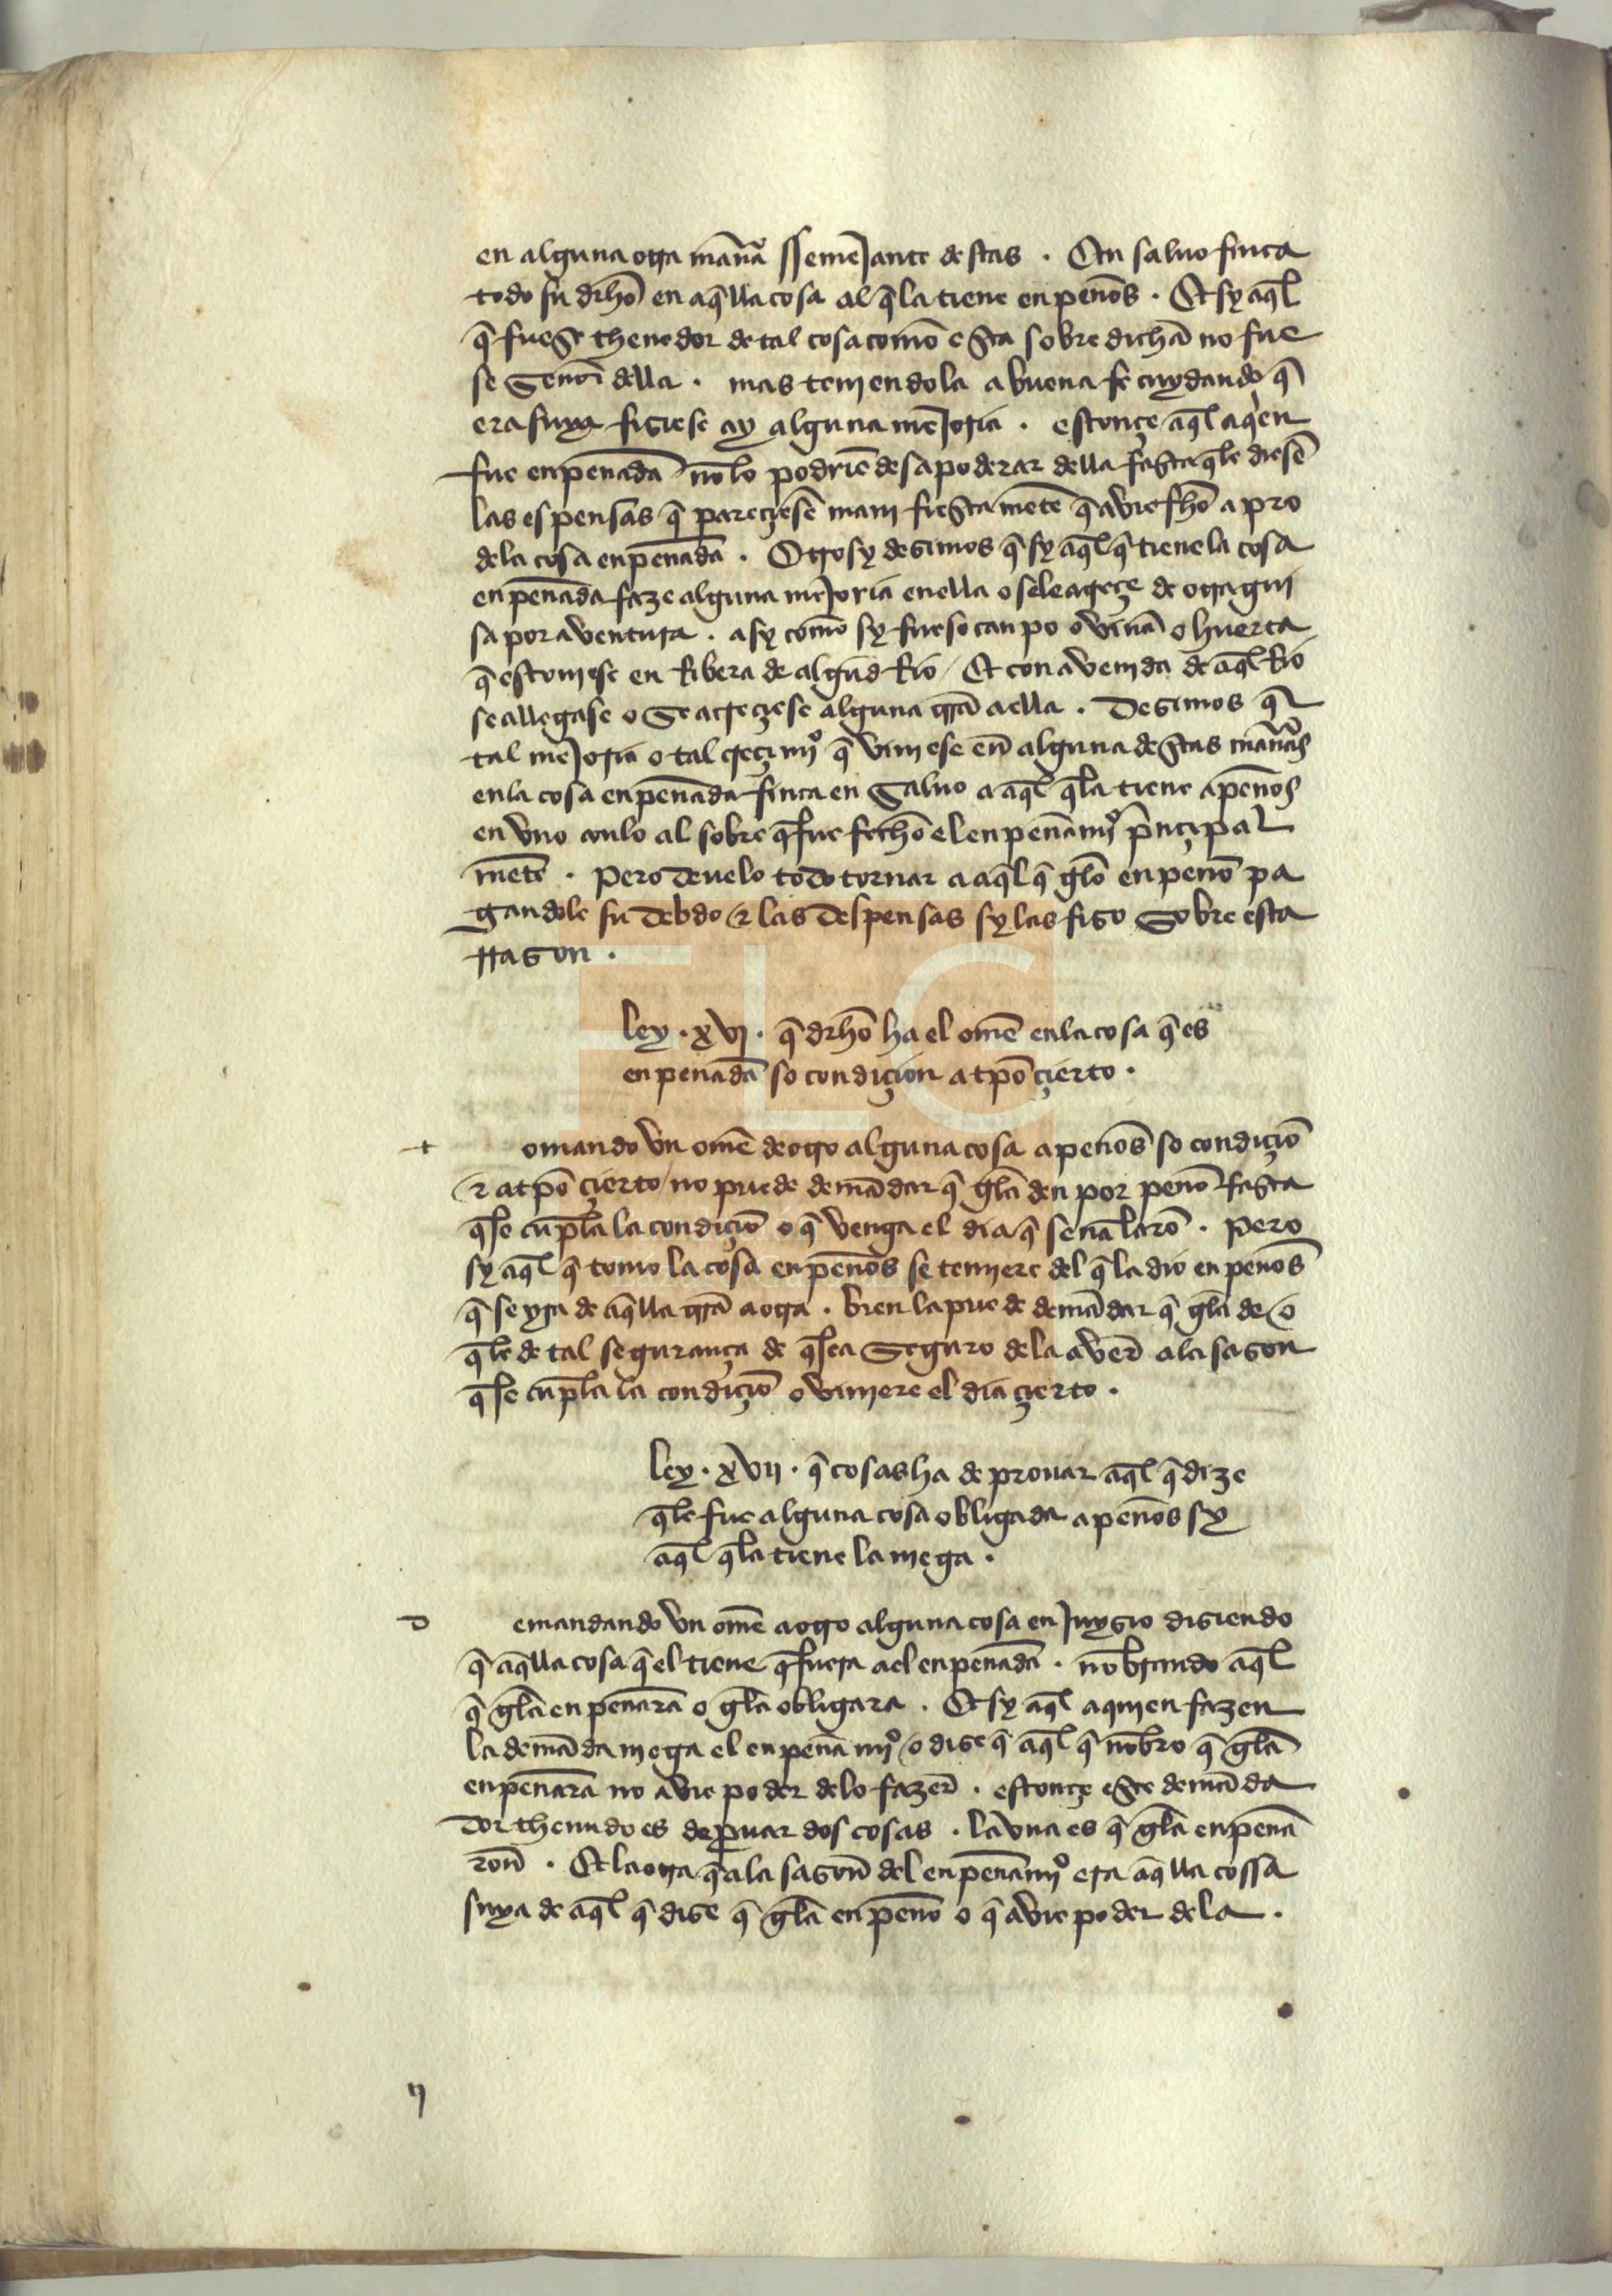 en alguna otra mãnã ssemẽjante destas . En saluo finca
todo su drħo en aq̃lla cosa al q̃ la tiene enpeños . Et sy aq̃l
q̃ fuese thenedor de tal cosa como esta sobre dicha no fue
se señor della . mas teniendola a buena fe cuydando q̃
era suya fisiese ay alguna mejoria . estonçe aq̃l a q̃en
fue enpeñada nõ lo podriẽ desapoderar della fasta q̃ le diesẽ
las espensas q̃ pareçiesẽ manifiesta mẽte q̃ avie fħo a pro
dela cosa enpeñada . Otrosy desimos q̃ sy aq̃l q̃ tiene la cosa
enpeñada faze alguna mejoria enella o sele acreçe de otra gui
sa por aventura . asy como sy fuese canpo o viña o huerta
q̃ estouiese en Ribera de algũd Rio / Et con avenida de aq̃l Rio
se allegase o se acreçiese alguna trã a ella . Desimos q̃
tal mejoria o tal creçimj° q̃ viniese en alguna destas mãnãs
enla cosa enpeñada finca en saluo a aq̃l q̃ la tiene apeños
en vno conlo al sobre q̃ fue fecho el enpeñamj° prĩnçipal
mẽte . Pero deuelo todo tornar a aq̃l q̃ gelo enpeño pa
gandole su debdo & las despensas sy las fiso sobre esta
rrason .
Ley . xvj . q̃ drħo ha el omẽ enla cosa q̃ es
enpeñada so condiçion a tpõ çierto .
t omando vn omẽ de otro alguna cosa apeños so condiçiõ
& a tpõ çierto / no puede demãdar q̃ gela den por peño fasta
q̃ se cũpla la condiçiõ o q̃ venga el dia q̃ señalarõ . Pero
sy aq̃l q̃ tomo la cosa enpeños se temiere del q̃ la dio enpeños
q̃ se yra de aq̃lla trã a otra . bien la puede demãdar q̃ gela de o
q̃ le de tal segurança de q̃ sea seguro dela aver ala sason
q̃ se cũpla la condiçiõ o viniere el dia çierto .
Ley . xvij . q̃ cosas ha de prouar aq̃l q̃ dize
q̃ le fue alguna cosa obligada apeños sy
aq̃l q̃ la tiene la niega .
d emandando vn omẽ a otro alguna cosa en juysio disiendo
q̃ aq̃lla cosa q̃ el tiene q̃ fuera a el enpeñada . nõbrando aq̃l
q̃ gela enpeñara o gela obligara . Et sy aq̃l a quien fazen
la demãda niega el enpeñamj° / o dise q̃ aq̃l q̃ nõbro q̃ gela
enpeñara no avie poder delo fazer . estonçe este demãda
dor thenudo es de prouar dos cosas . la vna es q̃ gela enpeña
ron . Et la otra q̃ ala sason del enpeñamj° era aq̃lla cossa
suya de aq̃l q̃ dise q̃ gela enpeño o q̃ avie poder dela .
ij
ELC